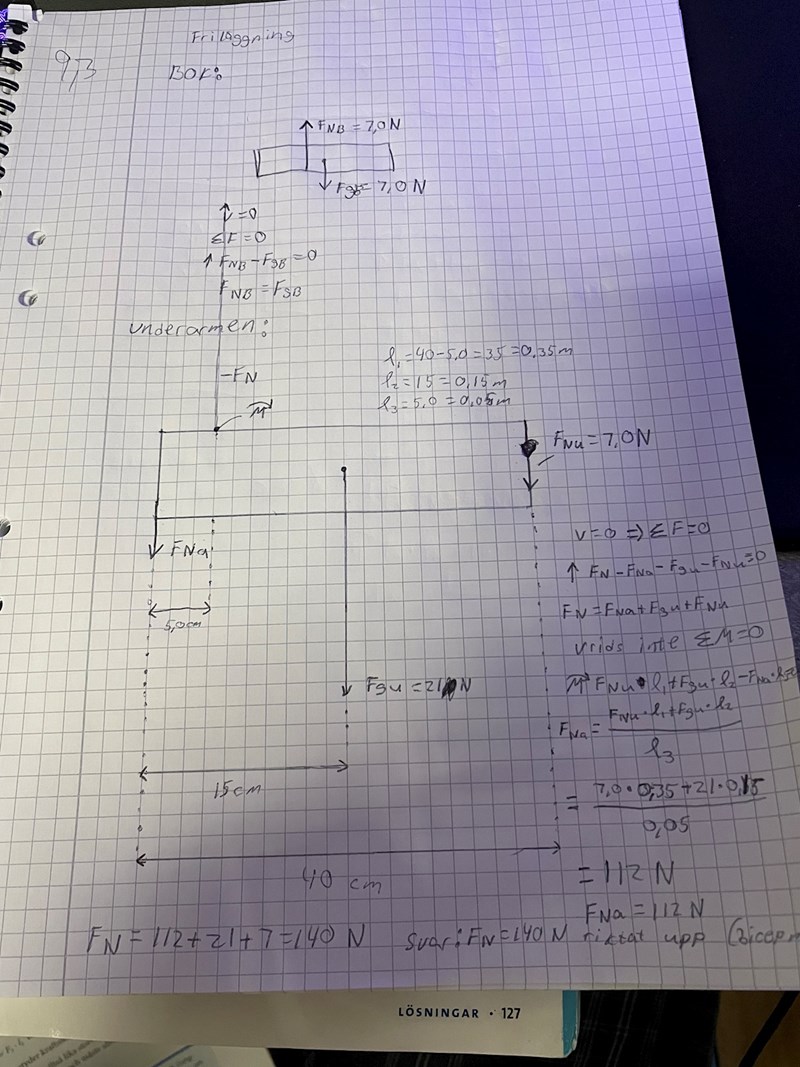 Friläggning
9,3
BOK:
F_NB = 7,0 N
F_gB = 7,0 N
v=0
ΣF=0
↑ F_NB - F_gB = 0
F_NB = F_gB
underarmen:
l₁ = 40-5,0 = 35 = 0,35 m
l₂ = 15 = 0,15 m
l₃ = 5,0 = 0,05 m
F_N
M
F_Nu = 7,0 N
F_Na
5,0 cm
v=0 ⇒ ΣF=0
↑ F_N - F_Na - F_gu - F_Nu = 0
F_N = F_Na + F_gu + F_Nu
vrids inte ΣM=0
F_gu = 21 N
M F_Nu · l₁ + F_gu · l₂ - F_Na · l₃
F_Na = F_Nu · l₁ + F_gu · l₂ / l₃
15 cm
= 7,0 · 0,35 + 21 · 0,15 / 0,05
40 cm
= 112 N
F_Na = 112 N
F_N = 112 + 21 + 7 = 140 N svar: F_N = 140 N riktat upp (Bicep
LÖSNINGAR · 127